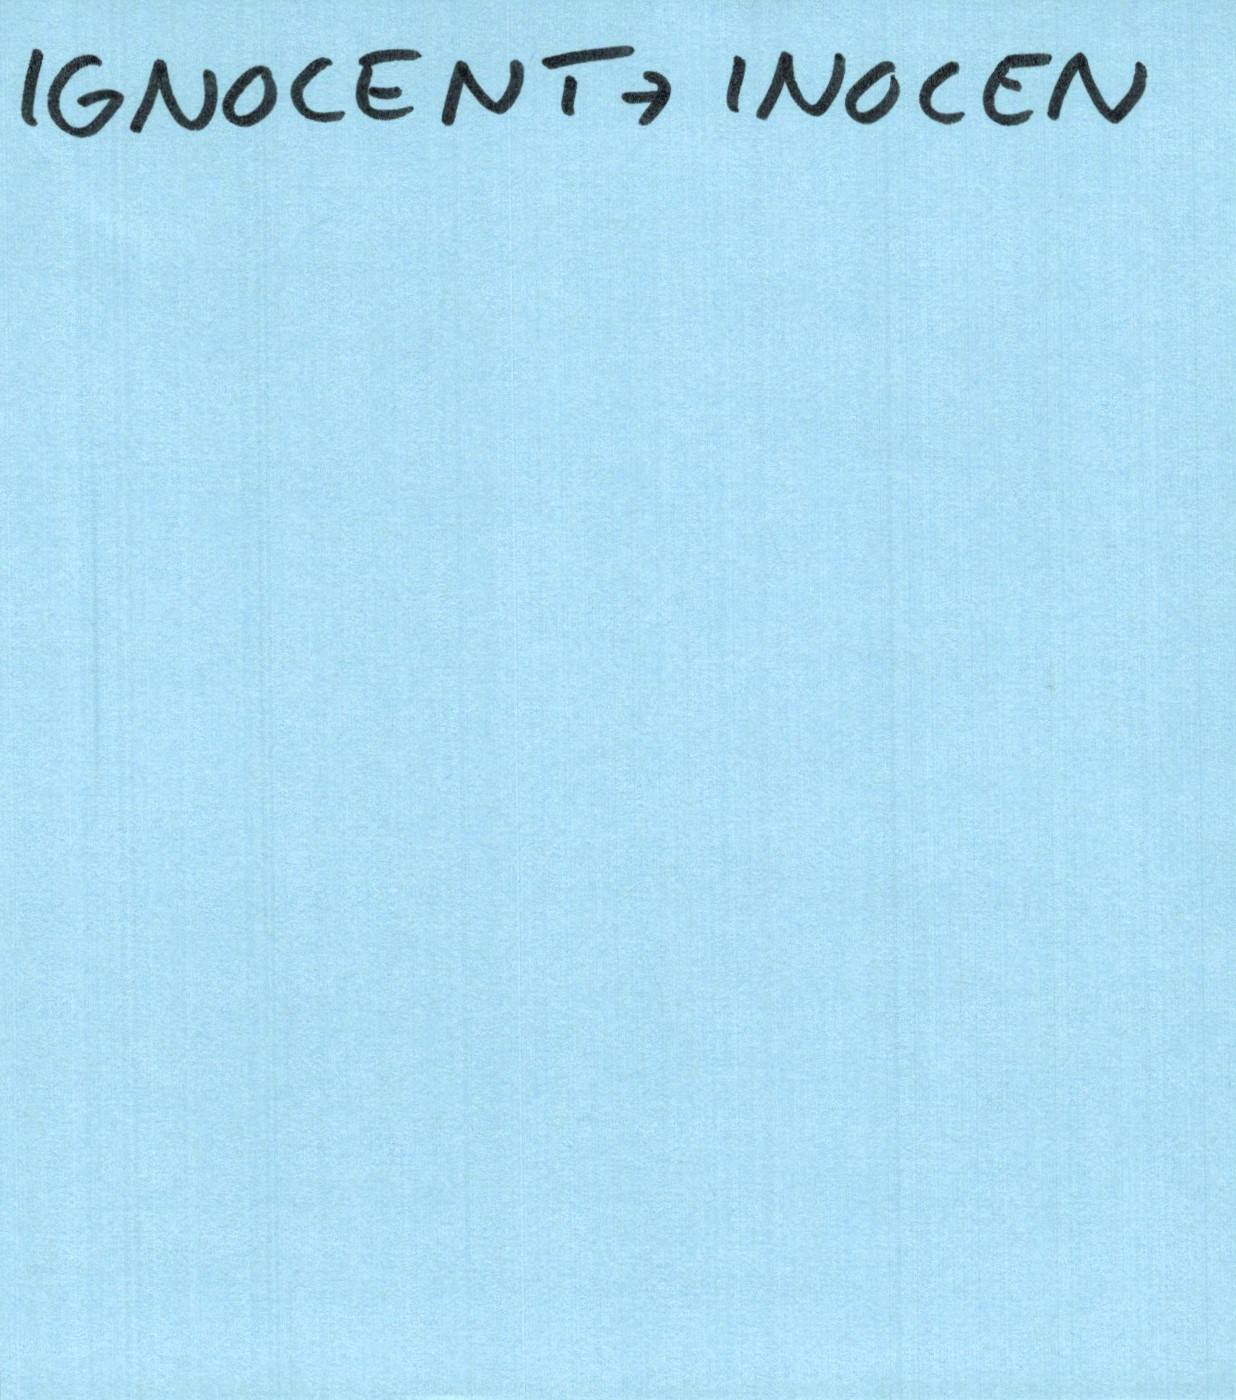 IGNOCENT → INOCEN